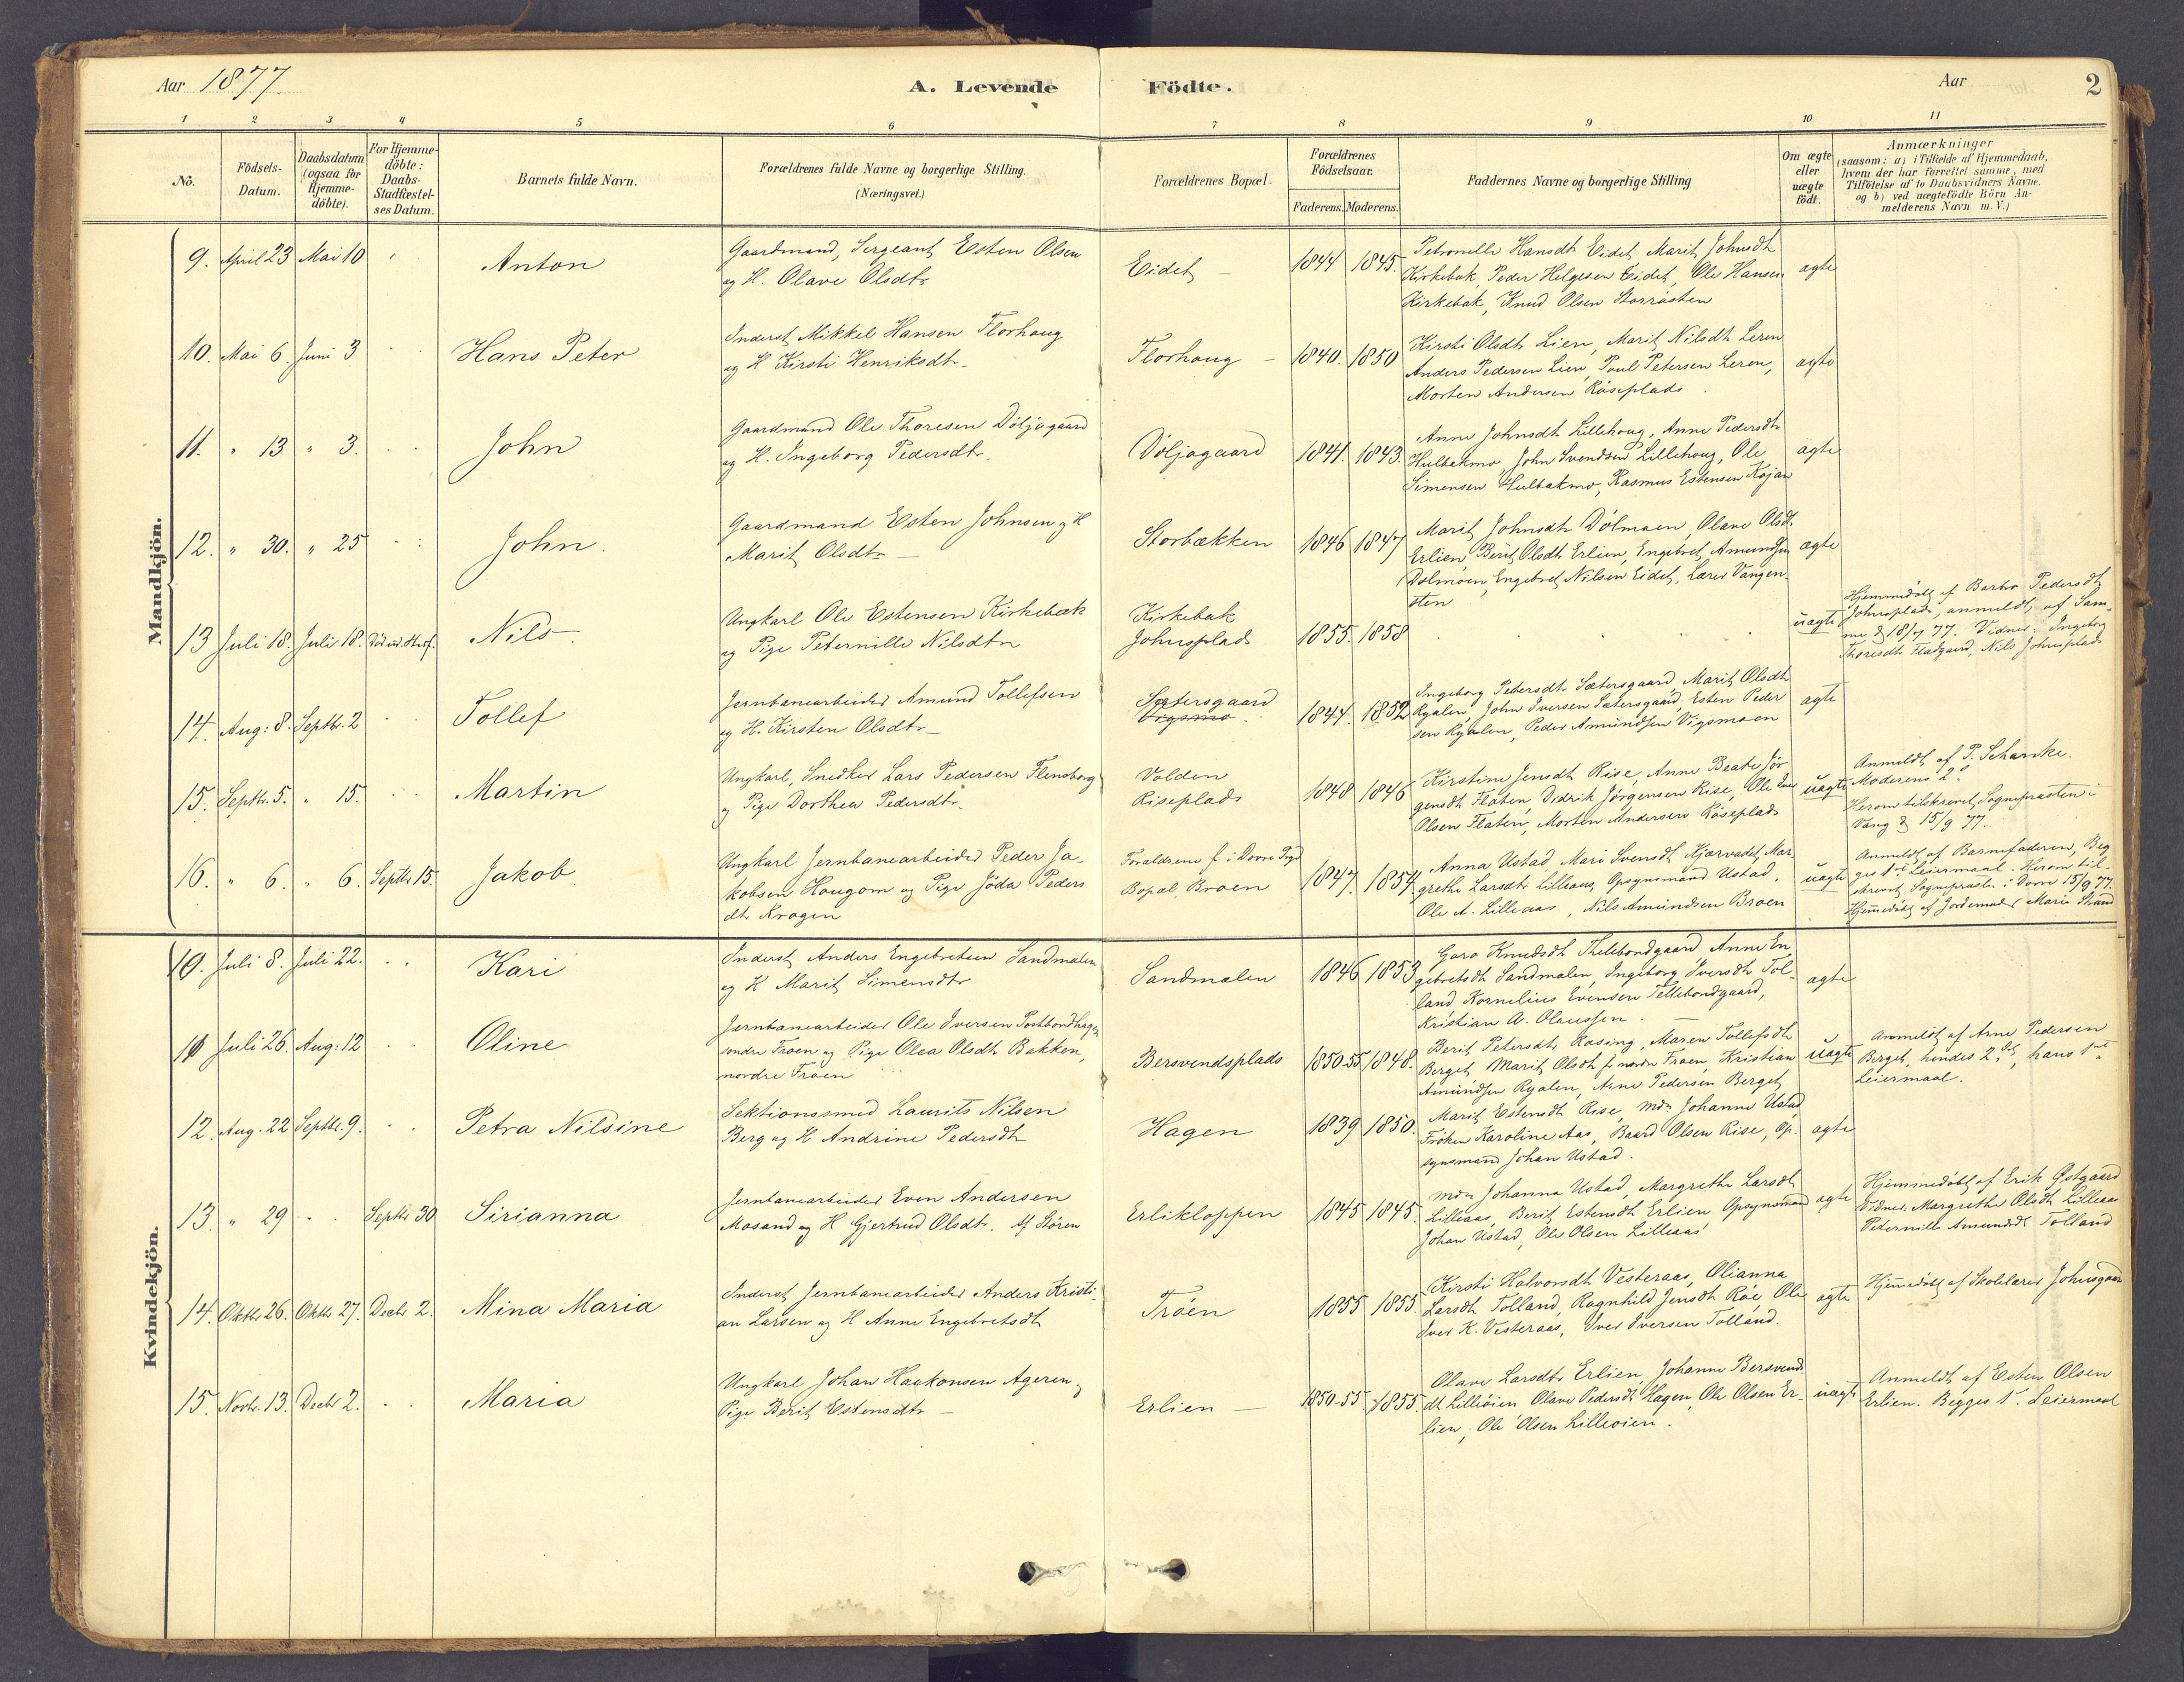 Aar 1877.
A. Levende Födte.
Aar
2
1 2 3 4 5 6 7 8 9 10 11
No.
Födsels-
Datum.
Daabsdatum
(ogsaa for
Hjemme-
döbte).
For Hjemme-
döbte:
Daabs-
Stadfæstel-
ses Datum.
Barnets fulde Navn.
Forældrenes fulde Navne og borgerlige Stilling.
(Næringsvei.)
Forældrenes Bopæl.
Forældrenes
Födselsaar.
Faderens. Moderens.
Faddernes Navne og borgerlige Stilling
Om ægte
eller
uægte
födt.
Anmærkninger
(saasom: a) i Tilfælde af Hjemmedaab,
hvem der har forrettet samme, med
Tilföielse af to Daabsvidners Navne.
og b) ved uægtefödte Börn An-
melderens Navn m. V.)
Mandkjön.
9. April 23 Mai 10
Anton
Gaardmand, Sergeant Esten Olsen
og H. Olave Olsdtr
Eidet
1844 1845.
Petronelle Hansdtr Eidet, Marit Johnsdtr
Kirkebak, Peder Helgesen Eidet, Ole Hansen
Kirkebak, Knud Olsen Storrøsten
ægte
10. Mai 6. Juni 3
Hans Peter
Inderst Mikkel Hansen Florhaug
og H Kirsti Henriksdtr
Florhaug
1840. 1850
Kirsti Olsdtr Lien, Marit Nilsdtr Leren
Anders Pedersen Lien, Poul Petersen Leren,
Morten Andersen Röseplads
ægte
11. " 13 " 3.
John
Gaardmand Ole Thoresen Döljogaard
og H. Ingeborg Pedersdtr.
Döljagaard
1841. 1843.
Anne Johnsdtr Lillehoug, Anne Pedersdtr
Hulbakmo, John Svendsen Lillehoug, Ole
Simensen Hulbakmo, Rasmus Estensen Kojan
ægte
12. " 30. " 25
John.
Gaardmand Esten Johnsen og H
Marit Olsdtr
Storbækken
1846 1847
Marit Johnsdtr Dölmoen, Olave Olsdt.
Erlien, Berit Olsdtr Erlien, Engebret Amundsen
Dolmoen, Engebret Nilsen Eidet, Lærer Vangen
sten
ægte
13 Juli 18. Juli 18.
Nils
Ungkarl Ole Estensen Kirkebæk
og Pige Peternille Nilsdtr
Kirkebak
Johnsplads
1855. 1858
uægte
Hjemmedöbt af Barbro Pedersdtr
Johnsplads, anmeldt af Sam-
me d 18/7 77. Vidner: Ingeborg
Thoresdtr Fladgaard, Nils Johnsplads
14. Aug: 8. Septbr. 2
Tollef
Jernbanearbeider Amund Tollefsen
og H. Kirsten Olsdtr
Sætersgaard
Vigsmo
1844. 1852
Ingeborg Pedersdtr Sætersgaard Marit Olsdtr
Ryalen, John Iversen Sætersgaard, Esten Peder
sen Ryalen, Peder Amundsen Vigsmoen
ægte
15. Septbr. 5. " 15.
Martin
Ungkarl, Snedker Lars Pedersen Flensborg
og Pige Dorthea Pedersdtr
Volden
Riseplads
1848 1846
Kirstine Jensdtr Rise, Anne Beate Jör
gensdtr Flaten, Didrik Jörgensen Rise, Ole Iver
Olsen Flaten, Morten Andersen Röseplads
uægte
Anmeldt af P. Schanke.
Moderens 2de
Herom tilskrevet Sognepræsten i
Vang d 15/9 77.
16. " 6. " 6. Septbr 15.
Jakob.
Ungkarl Jernbanearbeider Peder Ja-
kobsen Hougom og Pige Jöda Peders
dtr Krogen
Forældrene f i Dovre Prgd
Bopæl Broen
1847. 1854.
Anna Ustad, Mari Svensdtr Kjærvadet, Mar-
grethe Larsdtr Lilleaas, Opsynsmand Ustad,
Ole A. Lilleaas, Nils Amundsen Broen
uægte
Anmeldt af Barnefaderen, Beg
ges 1ste Leiermaal. Herom til-
skrevet Sognepræsten i Dovre 15/9 77.
Hjemmedöbt af Jordemoder Mari Strand
Kvindekjön.
10. Juli 8. Juli 22.
Kari
Inderst Anders Engebretsen Sandmalen
og H Marit Simensdtr
Sandmalen
1846 1853
Goro Knudsdtr Thellebondgaard Anne En
gebretsdtr Sandmalen, Ingeborg Iversdtr Tol-
land Kornelius Evensen Tellebondgaard,
Kristian A. Olaussen.
ægte
11 Juli 26. Aug: 12
Oline
Jernbanearbeider Ole Iversen Postbondhagen
söndre Troen og Pige Olea Olsdtr Bakken,
nordre Troen
Bersvendsplads
1850-55 1848.
Berit Petersdtr Rosing, Maren Tollefsdtr
Berget Marit Olsdtr f. nordre Troen, Kristian
Amundsen Ryalen, Arne Pedersen Berget
uægte
Anmeldt af Arne Pedersen
Berget, hendes 2det, hans 1ste
Leiermaal.
12. Aug. 22 Septbr. 9.
Petra Nilsine
Sektionssmed Laurits Nilsen
Berg og H Andrine Pedersdtr
Hagen
1839 1850.
Marit Estensdtr Rise, Mdm Johanne Ustad
Fröken Karoline Aas, Baard Olsen Rise, Op-
synsmand Johan Ustad.
ægte
13. " 29 Septbr 30
Sirianna
Jernbanearbeider Even Andersen
Mosand og H Gjertrud Olsdtr. Af Stören
Erlikloppen
1845 1845.
Mdm Johanna Ustad, Margrethe Larsdtr
Lilleaas, Berit Estensdtr Erlien Opsynsmand
Johan Ustad, Ole Olsen Lilleaas
ægte
Hjemmedöbt af Erik Östgaard
Vidner: Margrethe Olsdtr Lilleaas
Peternille Amundsdtr Tolland
14. Oktbr. 26. Oktbr 27. Decbr 2.
Mina Maria
Inderst Jernbanearbeider Anders Kristi-
an Larsen og H Anne Engebretsdtr
Tröen
1855 1855.
Kirsti Halvorsdtr Vesteraas, Olianna
Larsdtr Tolland, Ragnhild Jensdtr Röe, Ole
Iver K. Vesteraas, Iver Iversen Tolland.
ægte
Hjemmedöbt af Skolelærer Johnsgaard
15. Novbr. 13. Decbr 2.
Maria
Ungkarl Johan Haakonsen Ageren og
Pige Berit Estensdtr
Erlien
1850-55. 1855.
Olave Larsdtr Erlien, Johanne Bersvends
dtr Lilleöien Olave Pedersdtr Hagen, Ole Olsen Er-
lien, Ole Olsen Lilleöien.
uægte
Anmeldt af Esten Olsen
Erlien. Begges 1ste Leiermaal